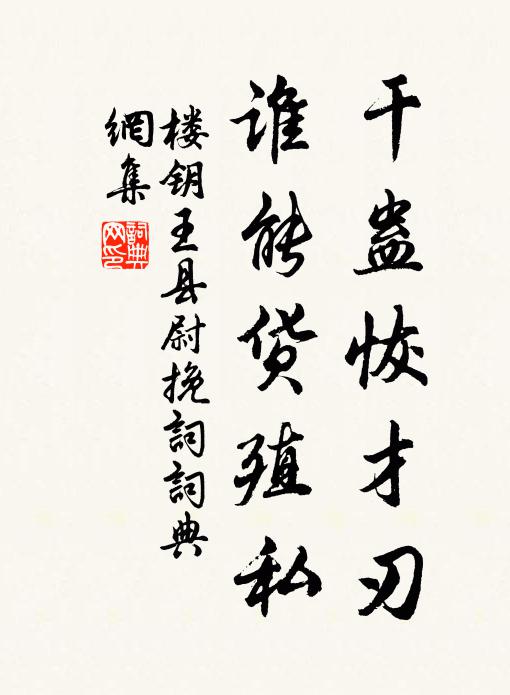 干蛊恢才刃
谁能货殖私
楼钥王县尉挽词詞典
網集
詞典网印